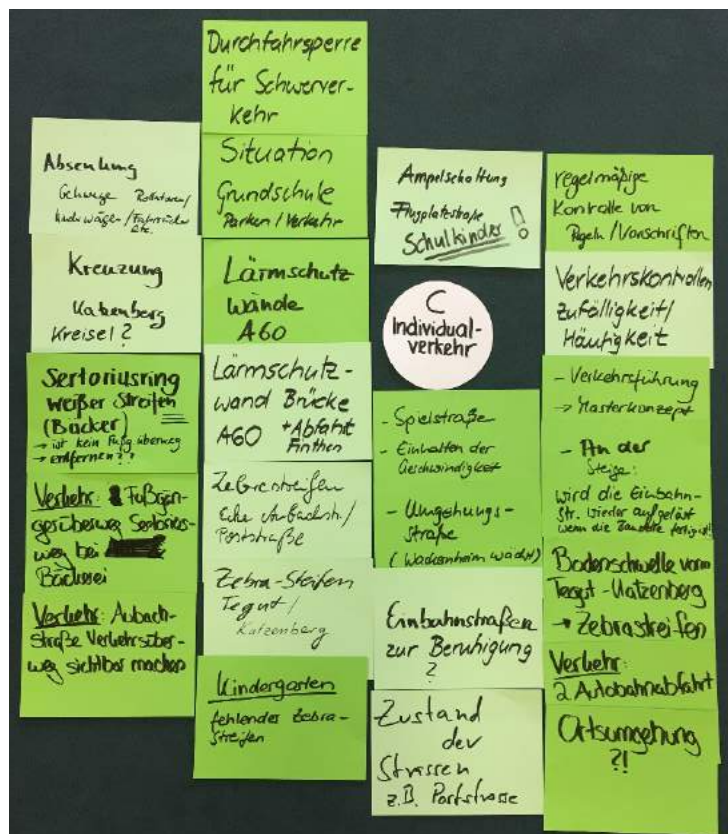 Absenkung
Gehwege Rollatoren/
Kinderwägen/Fahrräder
Etc.
Kreuzung
Katzenberg
Kreisel?
Sertoriusring
weißer Streifen
(Bäcker)
→ ist kein Fußgüberweg
→ entfernen??
Verkehr: Fußgän-
gerüberweg Sertorius-
weg bei
Bäckerei
Verkehr: Aubach-
straße Verkehrsüber-
weg sichtbar machen
Durchfahrsperre
für Schwerver-
kehr
Situation
Grundschule
Parken/Verkehr
Lärmschutz
Wände
A60
Lärmschutz-
wand Brücke
A60 + Abfahrt
Finthen
Zebrastreifen
Ecke Aubachstr./
Poststraße
Zebra-Steifen
Tegut/
Katzenberg
Kindergarten
fehlender Zebra-
Streifen
Ampelschaltung
Flugplatzstraße
Schulkinder!
C
Individual-
verkehr
- Spielstraße
- Einhalten der
Geschwindigkeit
- Umgehungs-
straße
(Wackernheim wächst)
Einbahnstraßen
zur Beruhigung
?
Zustand
der
Strassen
z.B. Poststrasse
regelmäßige
Kontrolle von
Regeln/Vorschriften
Verkehrskontrollen
Zufälligkeit/
Häufigkeit
- Verkehrsführung
→ Masterkonzept
- An der
Steige:
wird die Einbahn-
Str. wieder aufgelöst
wenn die Baustelle fertig ist!
Bodenschwelle vorm
Tegut-Katzenberg
→ Zebrastreifen
Verkehr:
2 Autobahnabfahrt
Ortsumgehung
?!